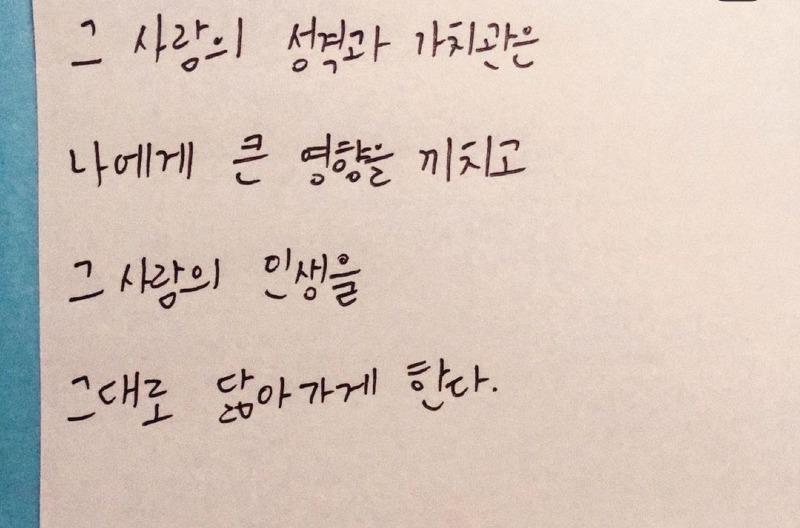 그 사람의 성격과 가치관은
나에게 큰 영향을 끼치고
그 사람의 인생을
그대로 닮아가게 한다.